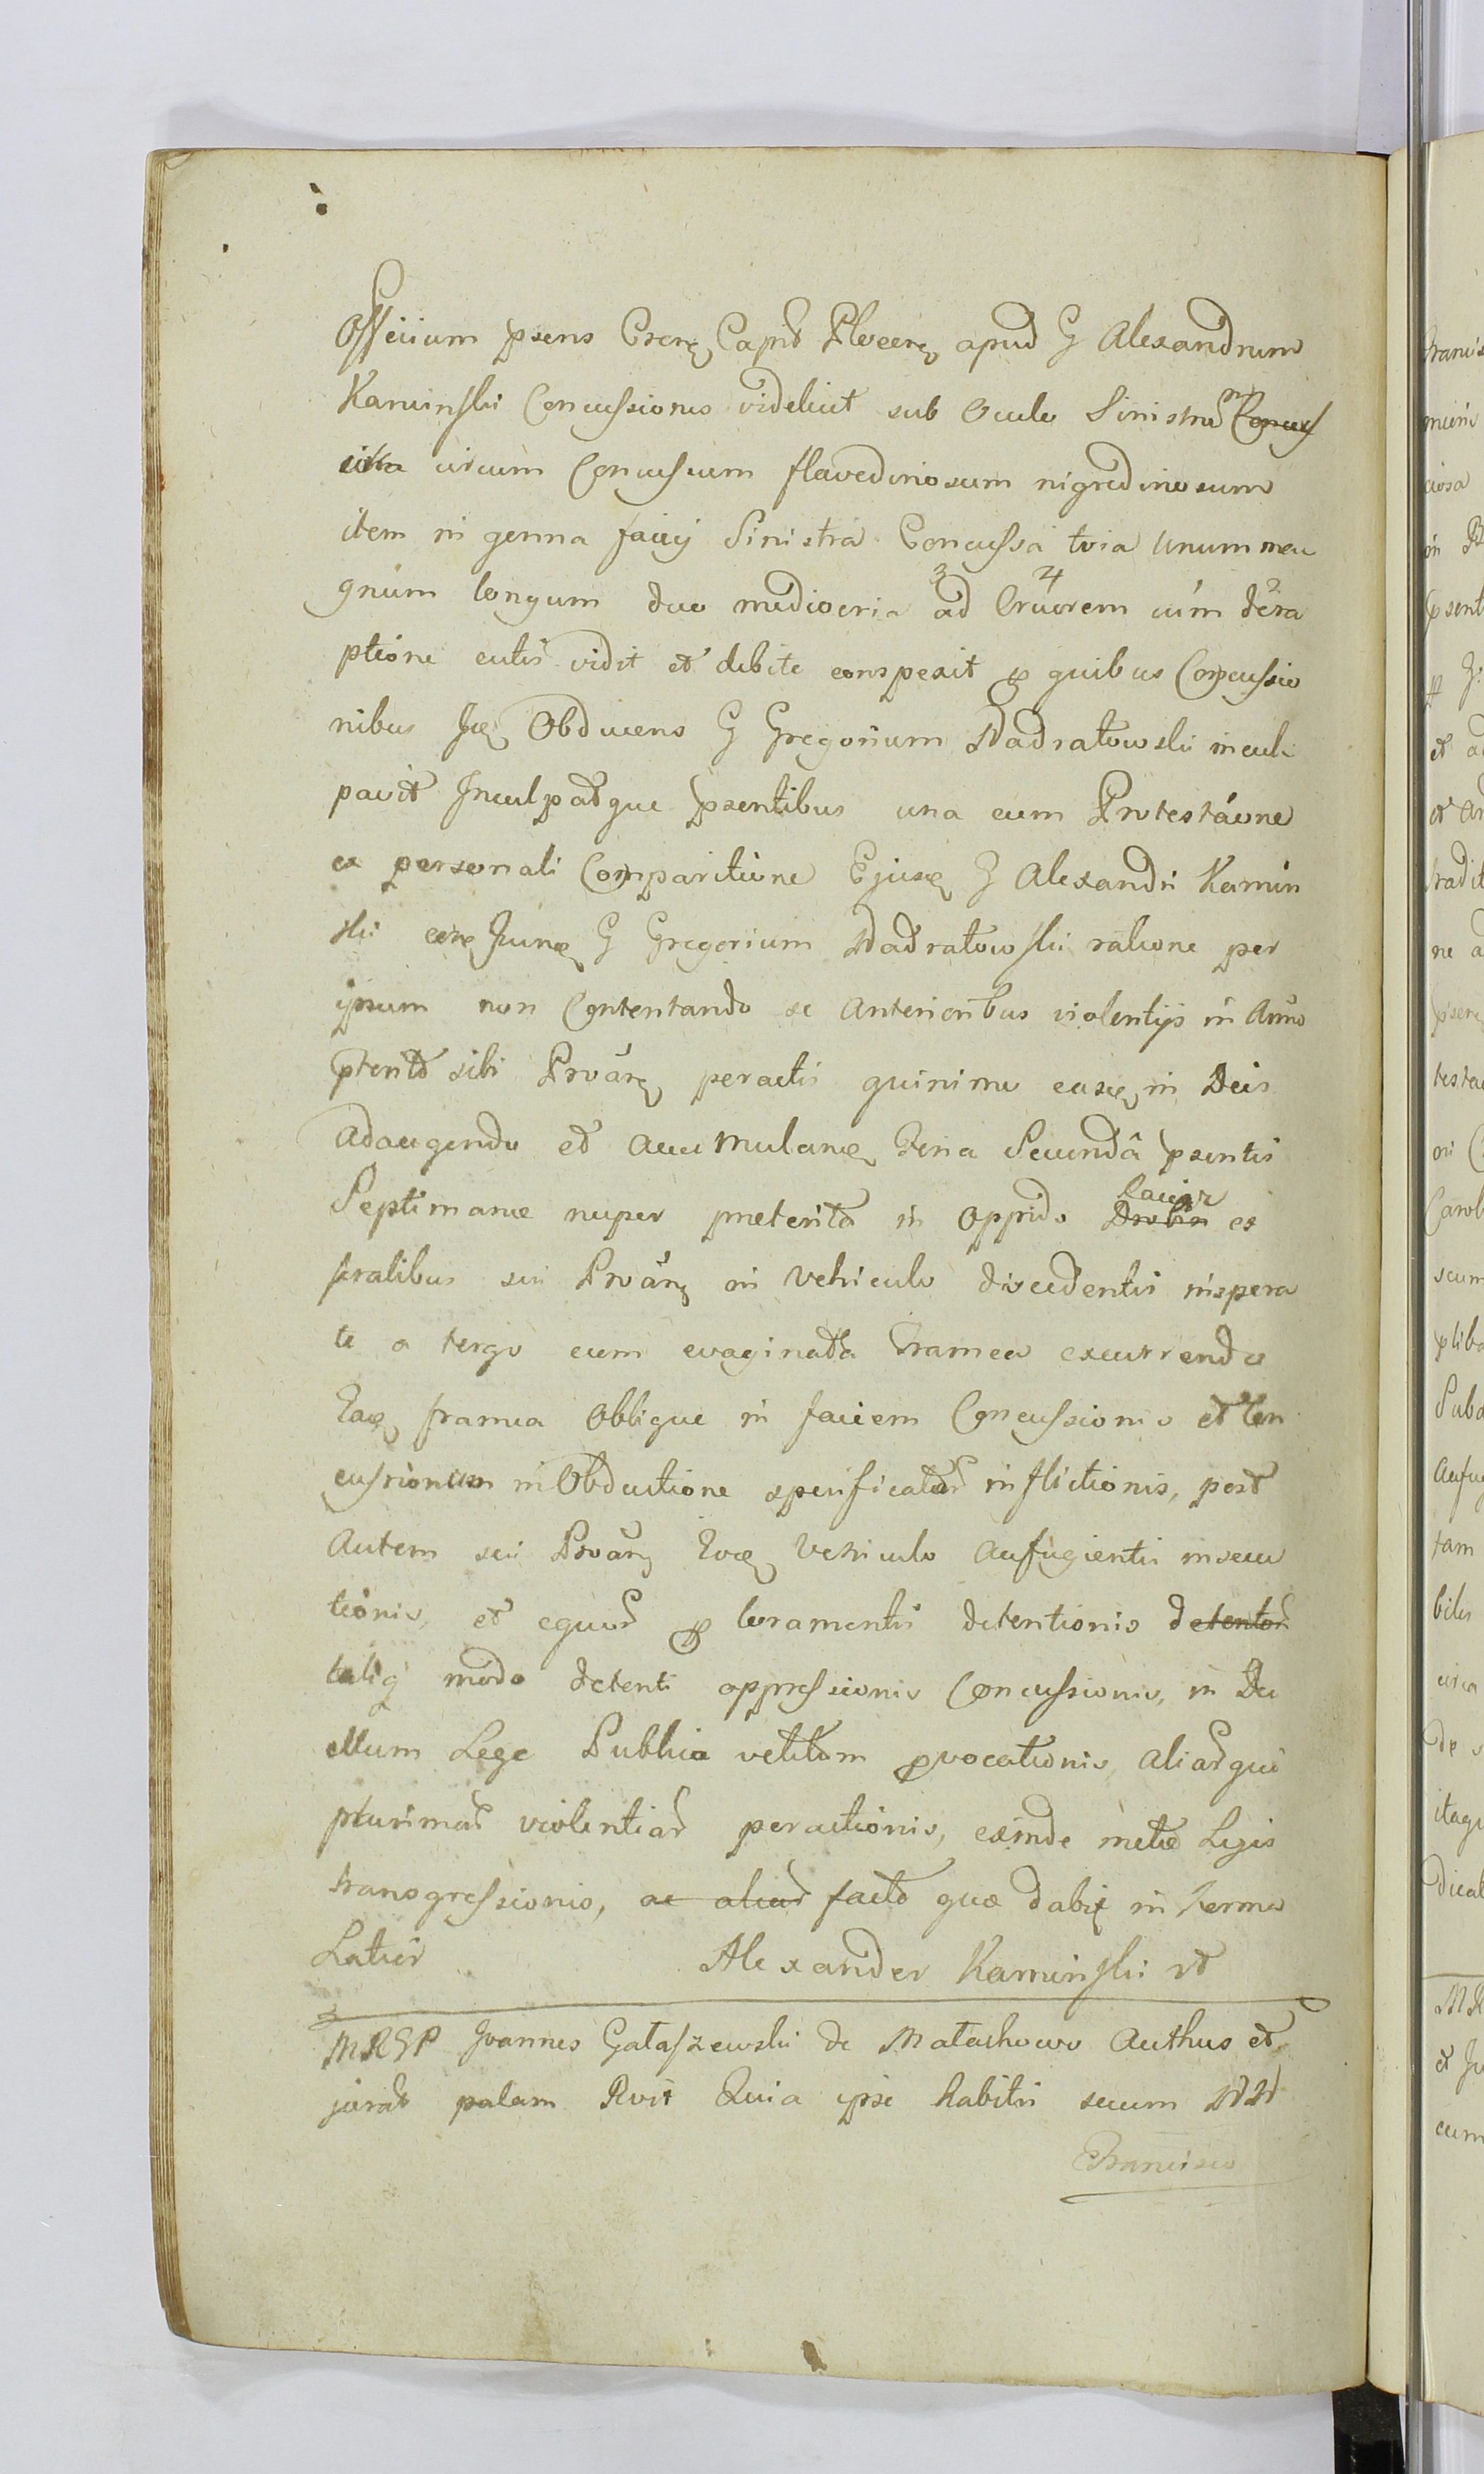 Officium psens Csrae Capit Plocen apud G Alexandrum
Kaminski Concussiones videlicet sub Oculo Sinistro Concus
circum Concussum flavedinosum nigredinosum
item in genna faciei Sinistra Concussa tria Unum ma
gnum longum duo mediocria ad Cruorem cum dera
ptione cutis vidit et debite conspexit p quibus Concussio
nibus Obducens G Gregorium Nadratowski incul
pavit Inculpatque psentibus una cum Protestaone
ex personali Comparitione G Alexandri Kamin
ski G Gregorium Nadratowski ratione per
ipsum non Contentando se anterioribus violentijs in Anno
pterito sibi Proan peractis quinimo in Deis
adaugendo et accumulan feria Secundâ psentis
Septimanae nuper praeterita in oppido Drobin ex
foralibus sui Proan in Vehiculo discedentis inspera
te a tergo cum evaginata framea excurrendo
framea Oblique in faciem Concussionis et Con
cussionum in Obductione specificatar inflictionis, post
Autem sui Proan Vehiculo aufugientis insecu
tionis, et equor p loramentis detentionis detentor
taliq modo detenti oppressionis Concussionis, in Du
ellum Lege Publica vetitum pvocationis aliarque
plurimar violentiar peractionis, exinde Legis
transgressionis, ac aliud facto quae in Termo
Latius Alexander Kaminski
MRGP Joannes Gałaszewski de Małachowo Authus et
jurat palam Rvit Quia ipse habitis secum NN
Francisco